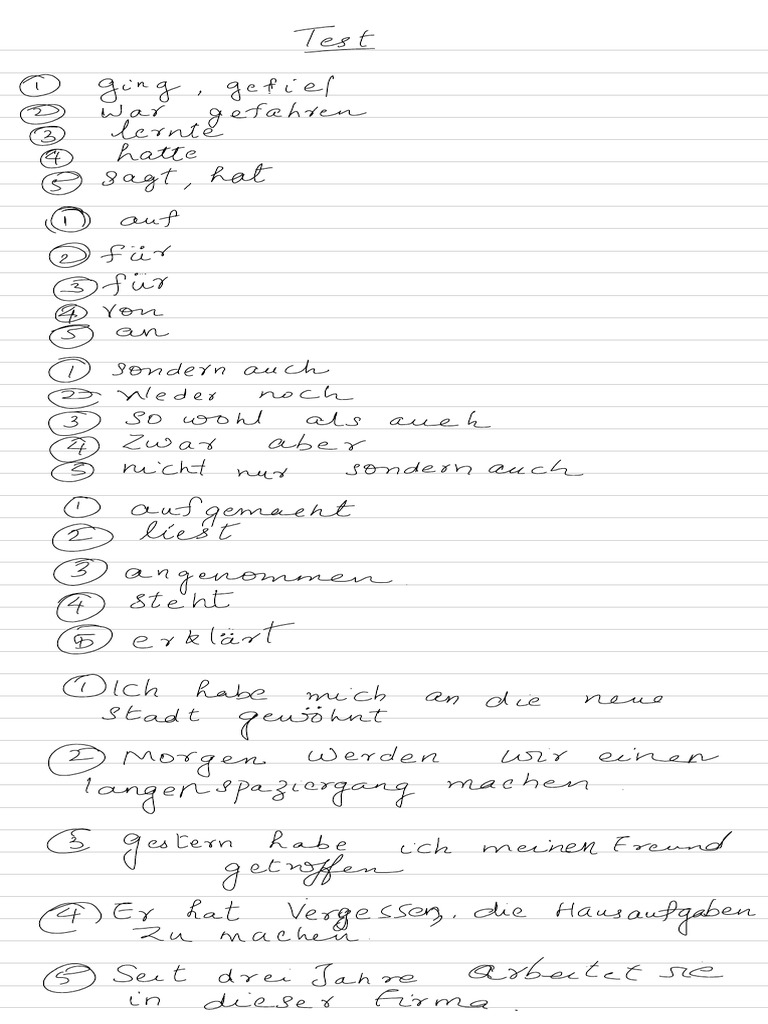 Test
① ging, gefiel
② war gefahren
③ lernte
④ hatte
⑤ sagt, hat
① auf
② für
③ für
④ von
⑤ an
① sondern auch
② Weder noch
③ so wohl als auch
④ Zwar aber
⑤ nicht nur sondern auch
① aufgemacht
② liest
③ angenommen
④ steht
⑤ erklärt
① Ich habe mich an die neue
stadt gewöhnt
② Morgen werden wir einen
langen spaziergang machen
③ gestern habe ich meinen Freund
getroffen
④ Er hat Vergessen, die Hausaufgaben
zu machen.
⑤ Seit drei Jahre arbeitet sie
in dieser firma.